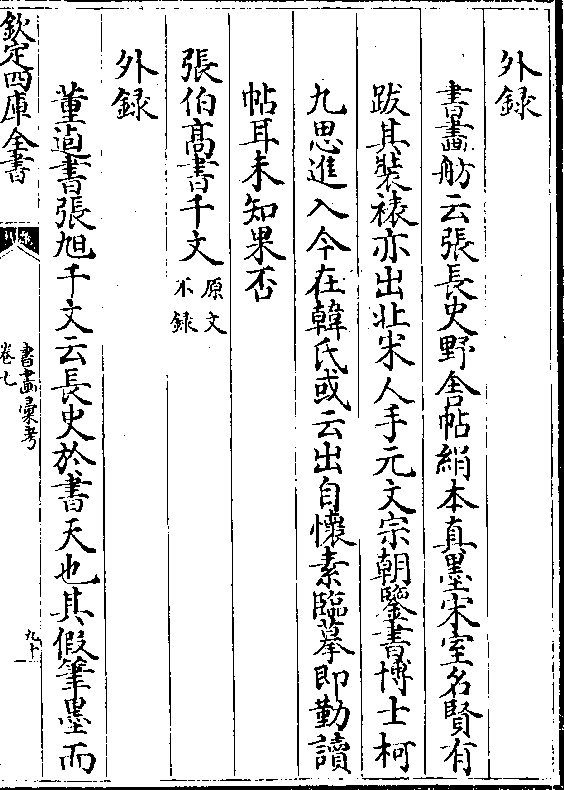 外録
書畵舫云張長史野舍帖絹本真墨宋室名賢有
跋其裝裱亦出北宋人手元文宗朝鑒書博士柯
九思進入今在韓氏或云出自懷素臨摹即勤讀
帖耳未知果否
張伯髙書千文原文不錄
外録
董逌書張旭千文云長史於書天也其假筆墨而
欽定四庫全書
書畵彚考
卷七
九十一